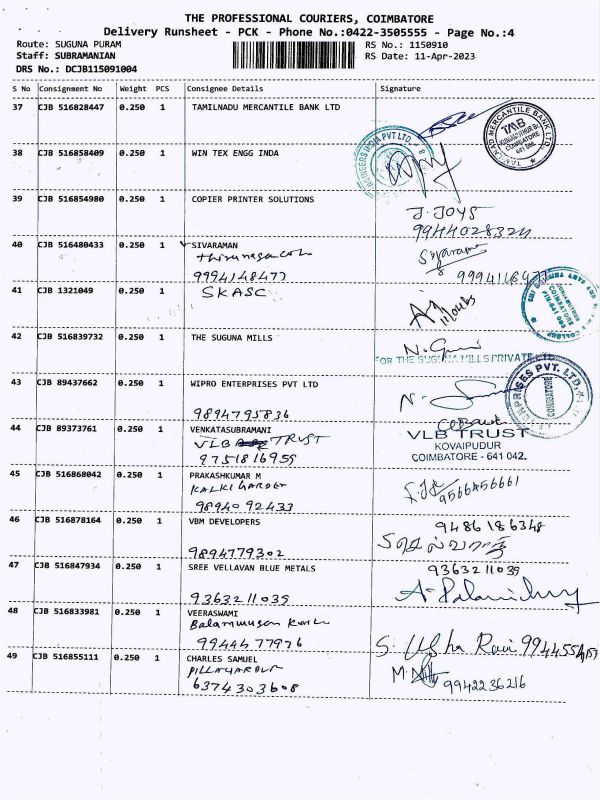 THE PROFESSIONAL COURIERS, COIMBATORE
Delivery Runsheet - PCK - Phone No.:0422-3505555 - Page No.:4
Route: SUGUNA PURAM
RS No.: 1150910
Staff: SUBRAMANIAN
RS Date: 11-Apr-2023
DRS No.: DCJB115091004
S No Consignment No Weight PCS Consignee Details Signature
37 CJB 516828447 0.250 1 TAMILNADU MERCANTILE BANK LTD
TAMILNAD MERCANTILE BANK LTD
TMB
COIMBATORE
38 CJB 516858409 0.250 1 WIN TEX ENGG INDA
ENGINEERS INDIA PVT LTD
39 CJB 516854980 0.250 1 COPIER PRINTER SOLUTIONS
J. JOYS
9944028324
40 CJB 516480433 0.250 1 SIVARAMAN
Sivaraman
9994148477 99941
41 CJB 1321049 0.250 1 SKASC
11/04/23
COIMBATORE
42 CJB 516839732 0.250 1 THE SUGUNA MILLS
FOR THE SUGUNA MILLS PRIVATE LTD
43 CJB 89437662 0.250 1 WIPRO ENTERPRISES PVT LTD
9894795836
ENTERPRISES PVT. LTD.
COIMBATORE
44 CJB 89373761 0.250 1 VENKATASUBRAMANI
VLB TRUST
9751816959
VLB TRUST
KOVAIPUDUR
COIMBATORE - 641 042.
45 CJB 516868042 0.250 1 PRAKASHKUMAR M
KALKI GARDEN
9894092433 9566456661
46 CJB 516878164 0.250 1 VBM DEVELOPERS 9486186348
9894779302
47 CJB 516847934 0.250 1 SREE VELLAVAN BLUE METALS 9363211039
9363211039
48 CJB 516833981 0.250 1 VEERASWAMI
Balamurugan
9944477976 S. Usha Rani
49 CJB 516855111 0.250 1 CHARLES SAMUEL
6374303608 9942236216